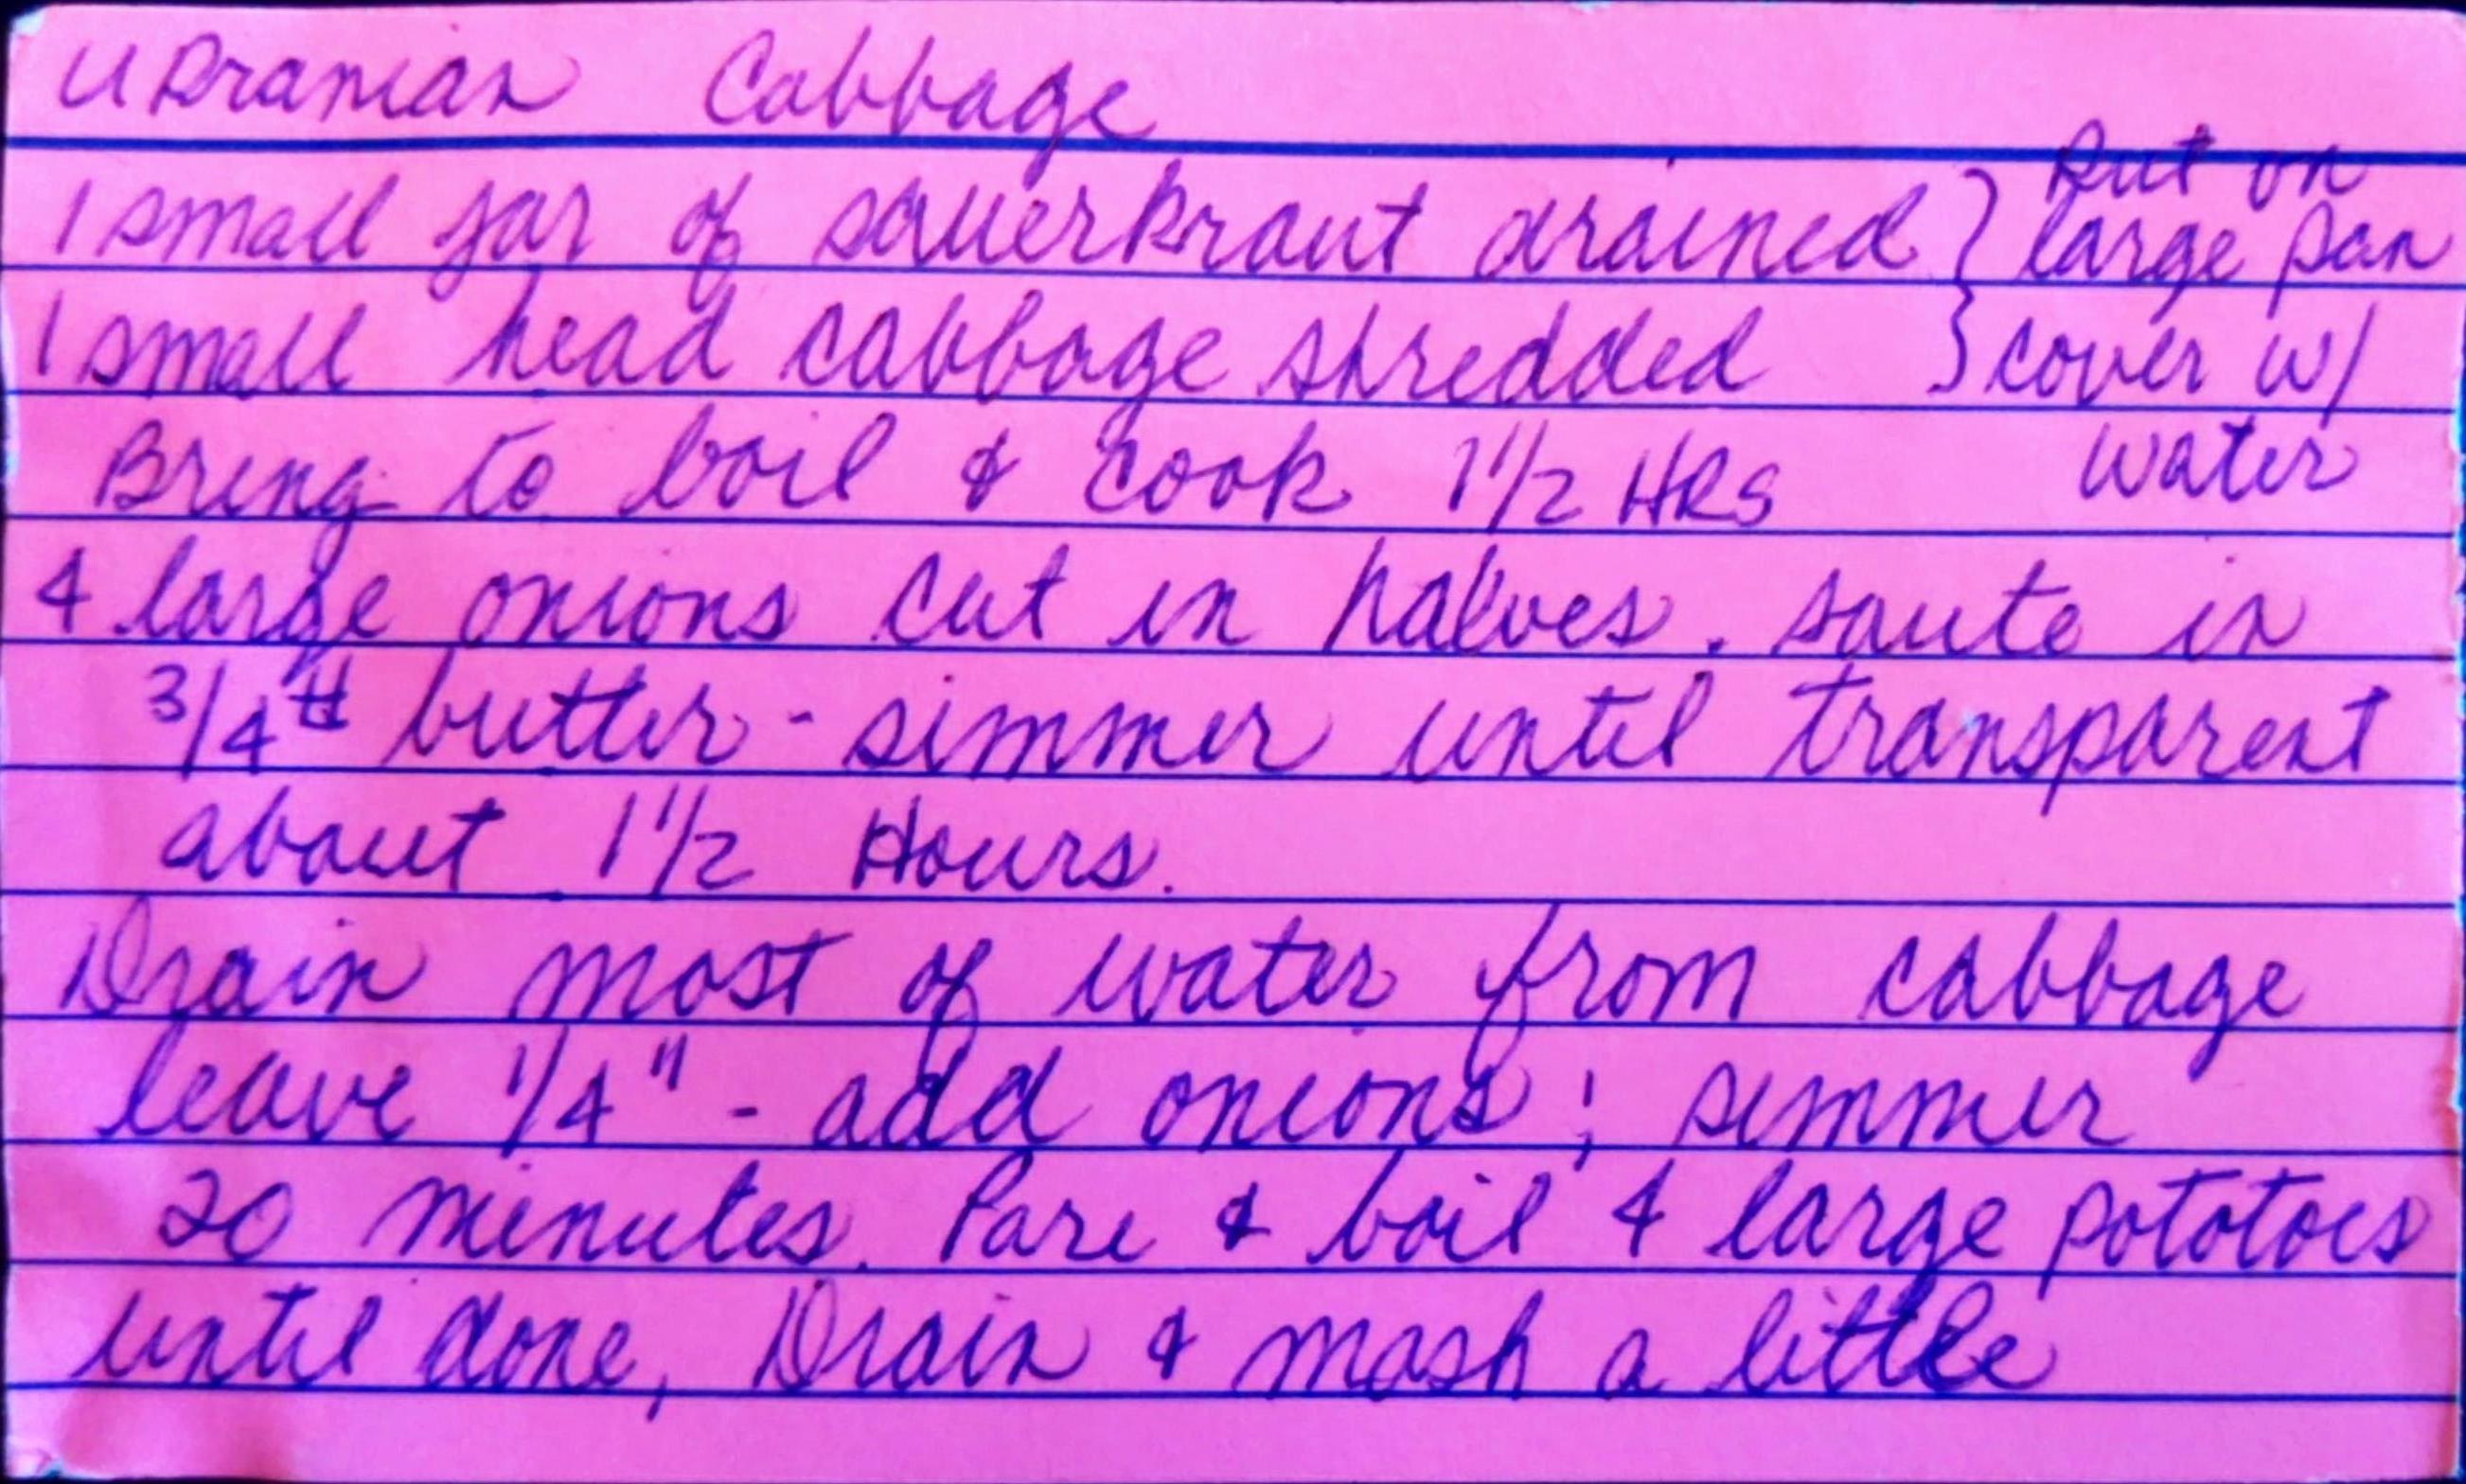 Ukranian Cabbage
1 small jar of sauerkraut drained } Put on large pan
1 small head cabbage shredded } cover w/ water
Bring to boil & cook 1 1/2 HRS
4 large onions cut in halves. saute in
3/4 # butter - simmer until transparent
about 1 1/2 Hours.
Drain most of water from cabbage
leave 1/4" - add onions; simmer
20 minutes. Pare & boil 4 large pototoes
until done, Drain & mash a little